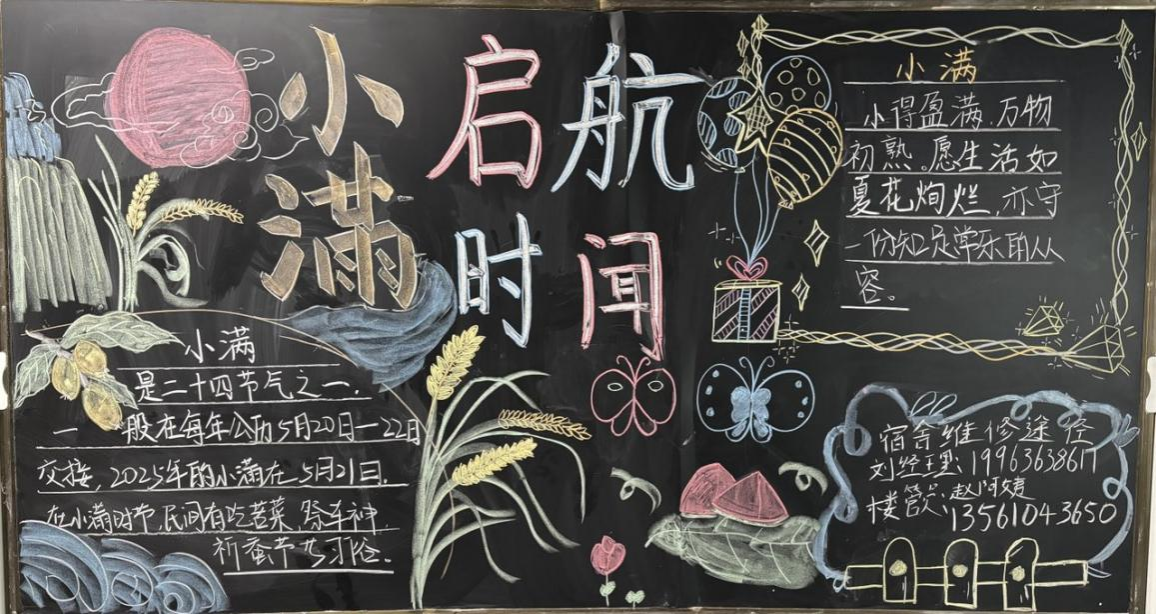 小满
启航
时间
小满
是二十四节气之一.
一般在每年公历5月20日一22日
交接,2025年的小满在5月21日.
在小满时节,民间有吃苦菜,祭车神,
祈蚕节等习俗.
小满
小得盈满,万物
初熟。愿生活如
夏花绚烂,亦守
一份知足常乐的从
容。
宿舍维修途径
刘经理:19963638617
楼管员:赵
13561043650